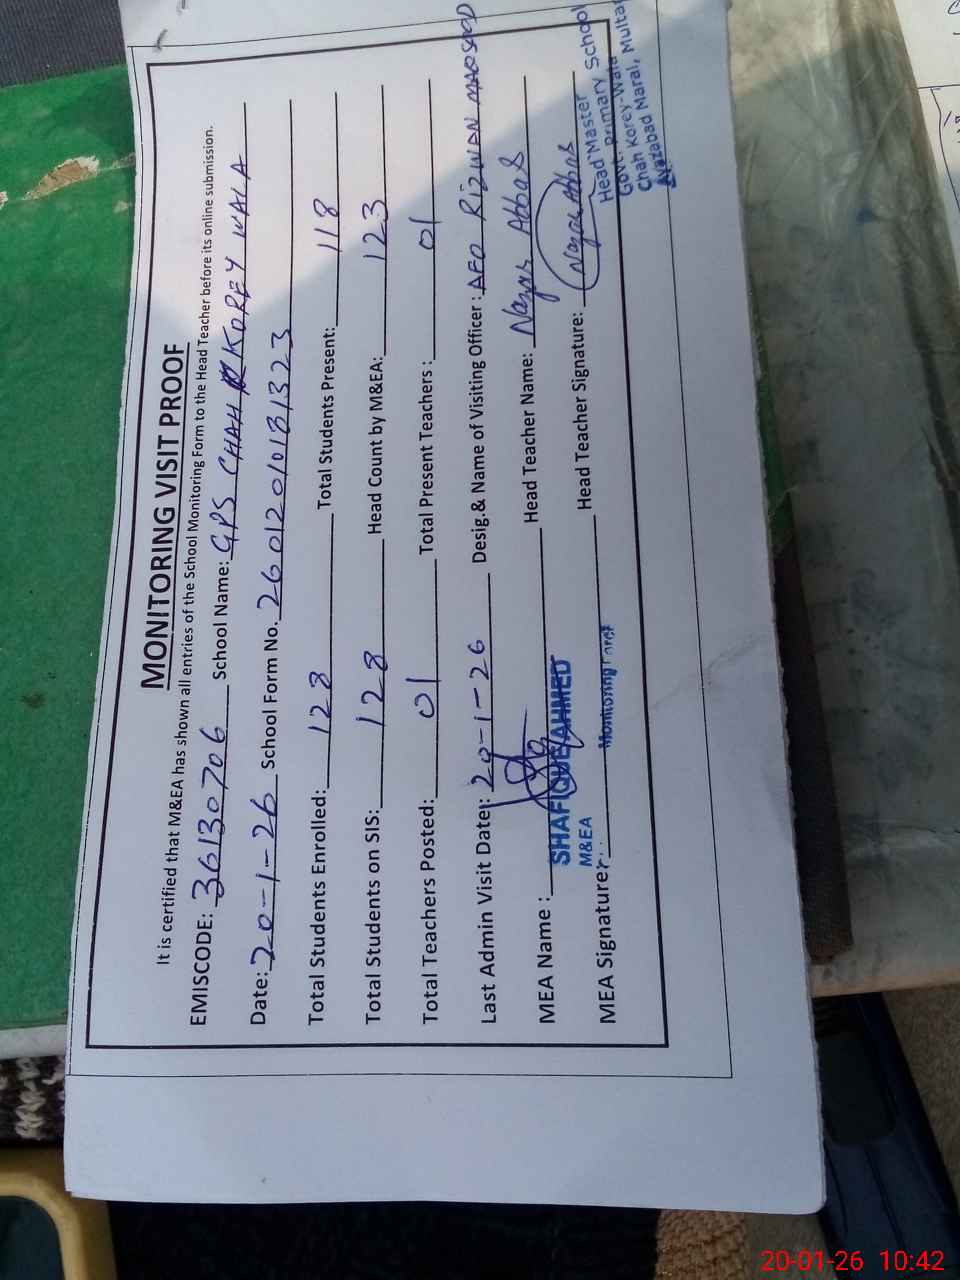 MONITORING VISIT PROOF
It is certified that M&EA has shown all entries of the School Monitoring Form to the Head Teacher before its online submission.
EMISCODE: 36130706 School Name: GPS CHAH KOREY WALA
Date: 20-1-26 School Form No. 260120101B1323
Total Students Enrolled: 128 Total Students Present: 118
Total Students on SIS: 128 Head Count by M&EA: 123
Total Teachers Posted: 01 Total Present Teachers : 01
Last Admin Visit Date: 20-1-26 Desig.& Name of Visiting Officer : AEO RIZWAN MAQSOOD
MEA Name : SHAFIQUE AHMED Head Teacher Name: Nazar Abbas
M&EA Monitoring
MEA Signature: Head Teacher Signature: Nazar Abbas
Head Master
Govt. Primary School
Chah Korey-Wala
Ayazabad Maral, Multan
20-01-26 10:42